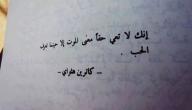 إنك لا تعي حقاً معنى الموت إلا حينما تعرف
الحب .
– كاثرين هاراي –